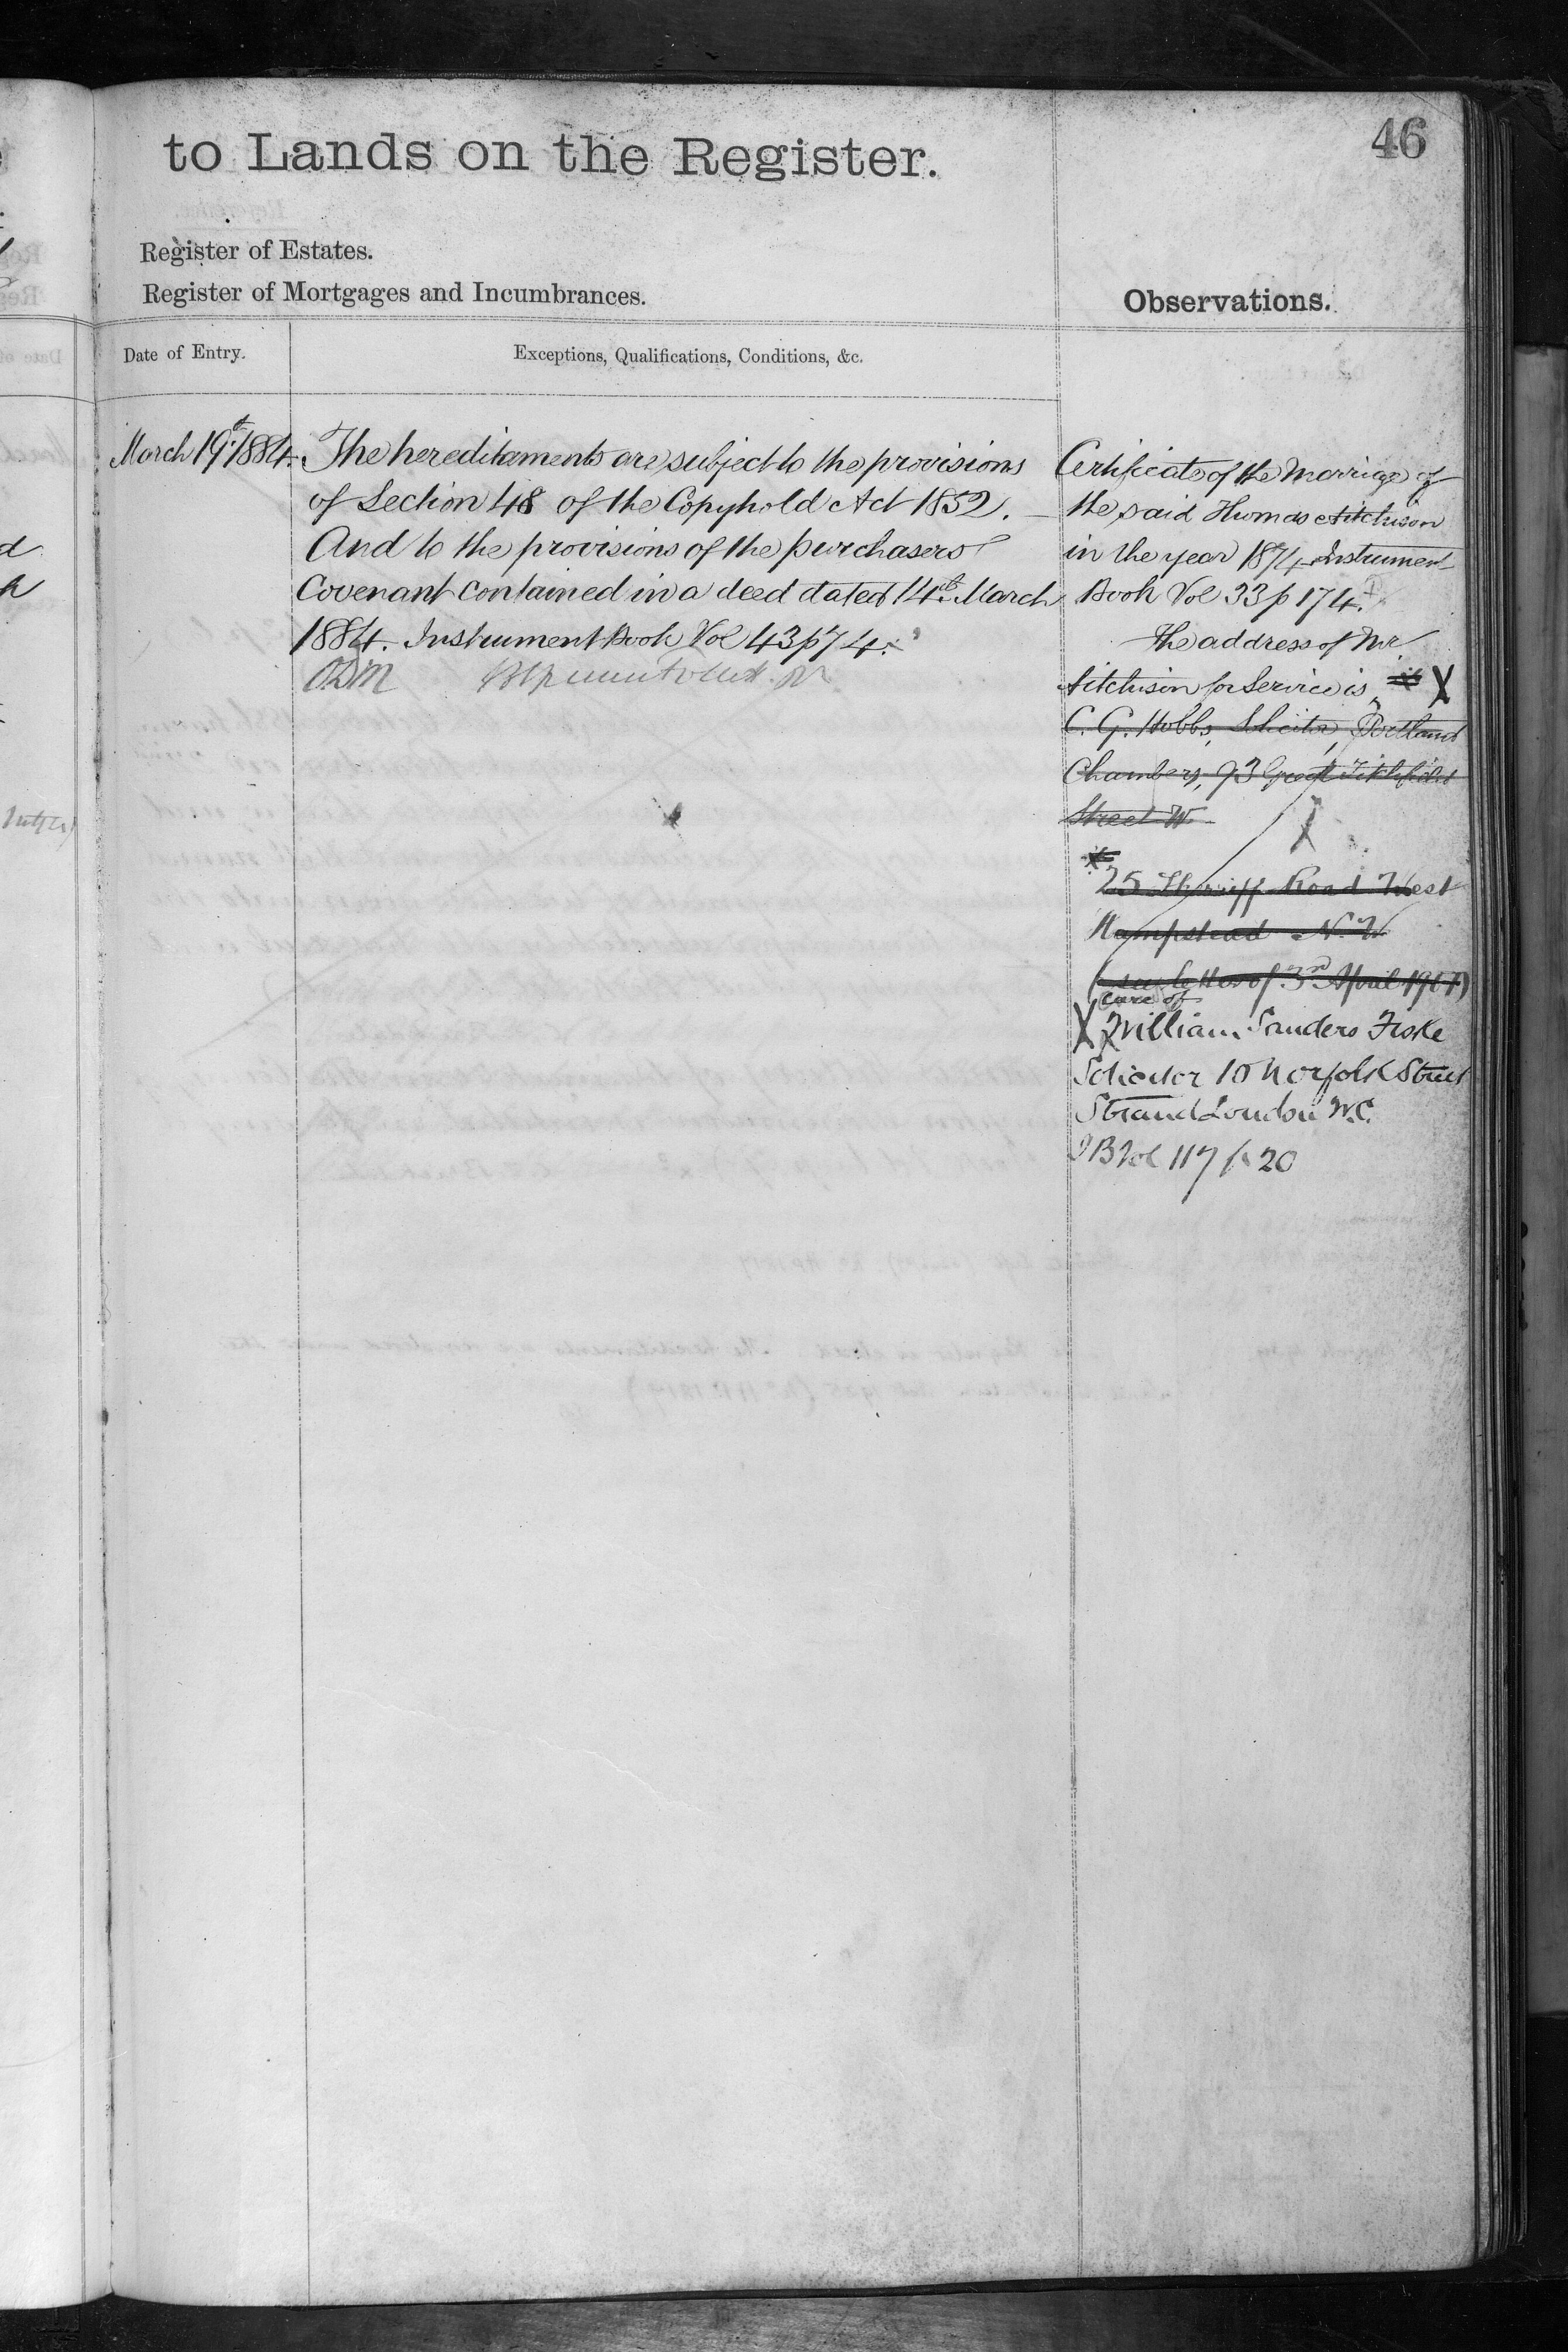 to Lands on the Register.
46
Register of Estates.
Register of Mortgages and Incumbrances.
Observations.
Date of Entry.
Exceptions, Qualifications, Conditions, &c.
March 19th 1884.
The hereditaments are subject to the provisions
of Section 48 of the Copyhold Act 1852.
And to the provisions of the purchasers
Covenant contained in a deed dated 14th March
1884. Instrument Book Vol 43 p 74.
Certificate of the Marriage of
the said Thomas Aitchison
in the year 1874 Instrument
Book Vol 33 p 174.
The address of Mr
Aitchison for Service is X
C. G. Hobbs, Solicitor, Portland
Chambers, 93 Great Titchfield
Street W.
X
25 Sherriff Road West
Hampstead N.W
(see letter of 3rd April 1907)
care of
X William Sanders Fiske
Solicitor 10 Norfolk Street
Strand London W.C.
I B Vol 117 p 20